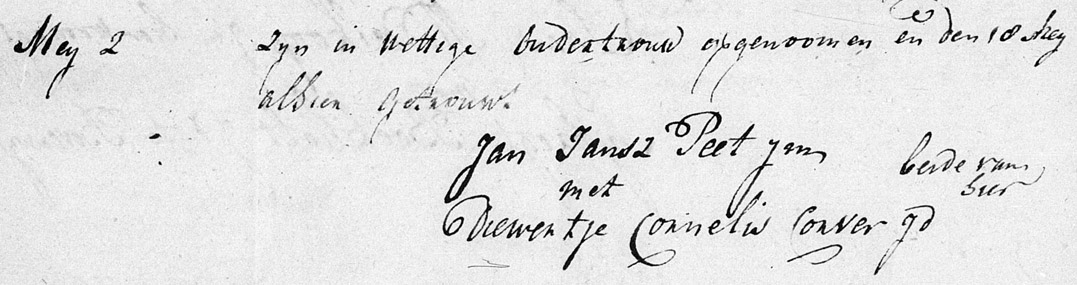 Mey 2 zyn in Wettige Ondertrouw opgenoomen en den 18 Mey
alhier getrouwt
Jan Jansz Peet jm
beide van
met
hier
Diewertje Cornelis Conver jd